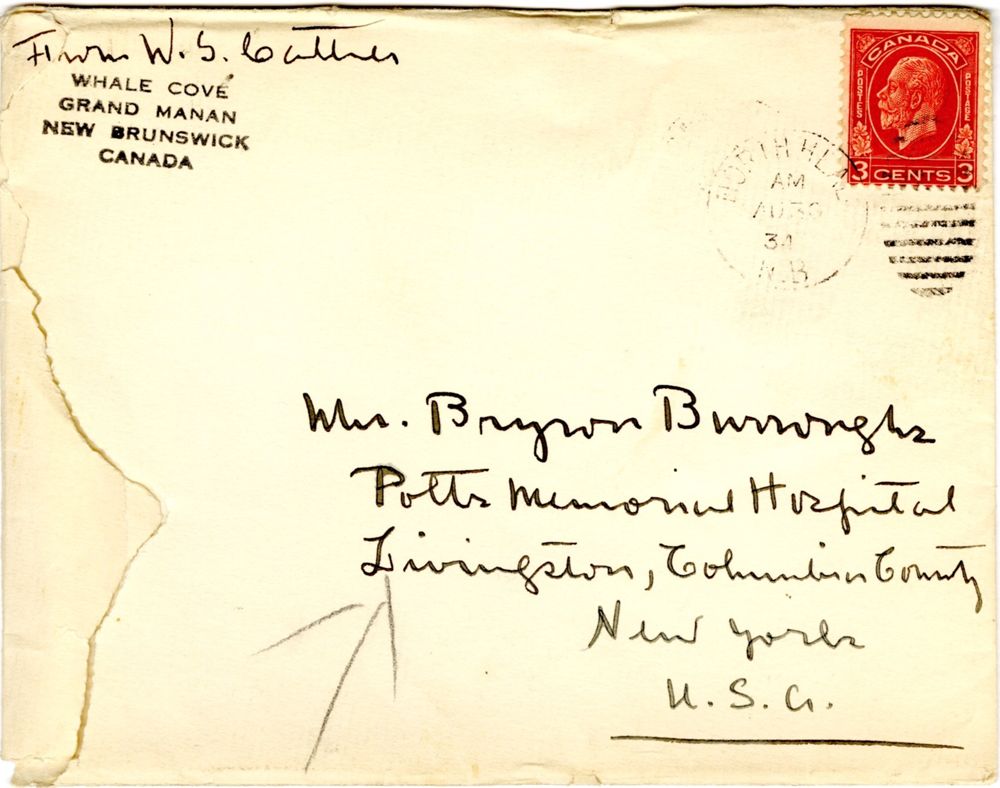 From W. S. Cather
WHALE COVE
GRAND MANAN
NEW BRUNSWICK
CANADA
POSTES CANADA POSTAGE
3 CENTS 3
NORTH HEAD
AM
AU 30
34
N.B
Mrs. Bryson Burroughs
Potts Memorial Hospital
Livingston, Columbia County
New York
U. S. A.